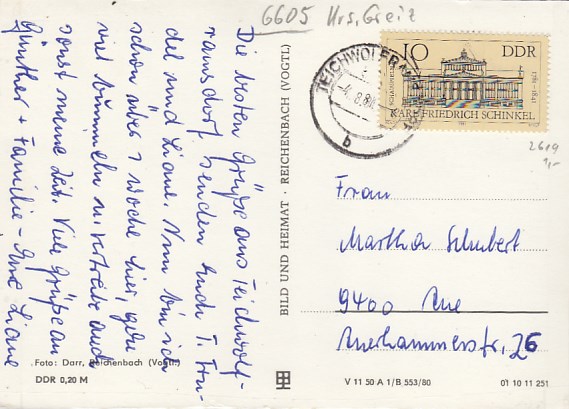 6605 Krs. Greiz
Die besten Grüße aus Teichwolf-
ramsdorf senden Euch T. Tru-
del und Liane. Nun bin ich
schon über 1 Woche hier, gehe
viel bummeln u. vertreibe auch
sonst meine Zeit. Viele Grüße an
Günther + Familie - Eure Liane
Foto: Darr, Reichenbach (Vogtl.)
DDR 0,20 M
BILD UND HEIMAT · REICHENBACH (VOGTL)
TEICHWOLFRAMSDORF
-4.8.81
b
10 DDR
SCHAUSPIELHAUS
1781-1841
KARL FRIEDRICH SCHINKEL
2619
1,-
Frau
Martha Schubert
9400 Aue
Auerhammerstr. 26
V 11 50 A 1/B 553/80
01 10 11 251